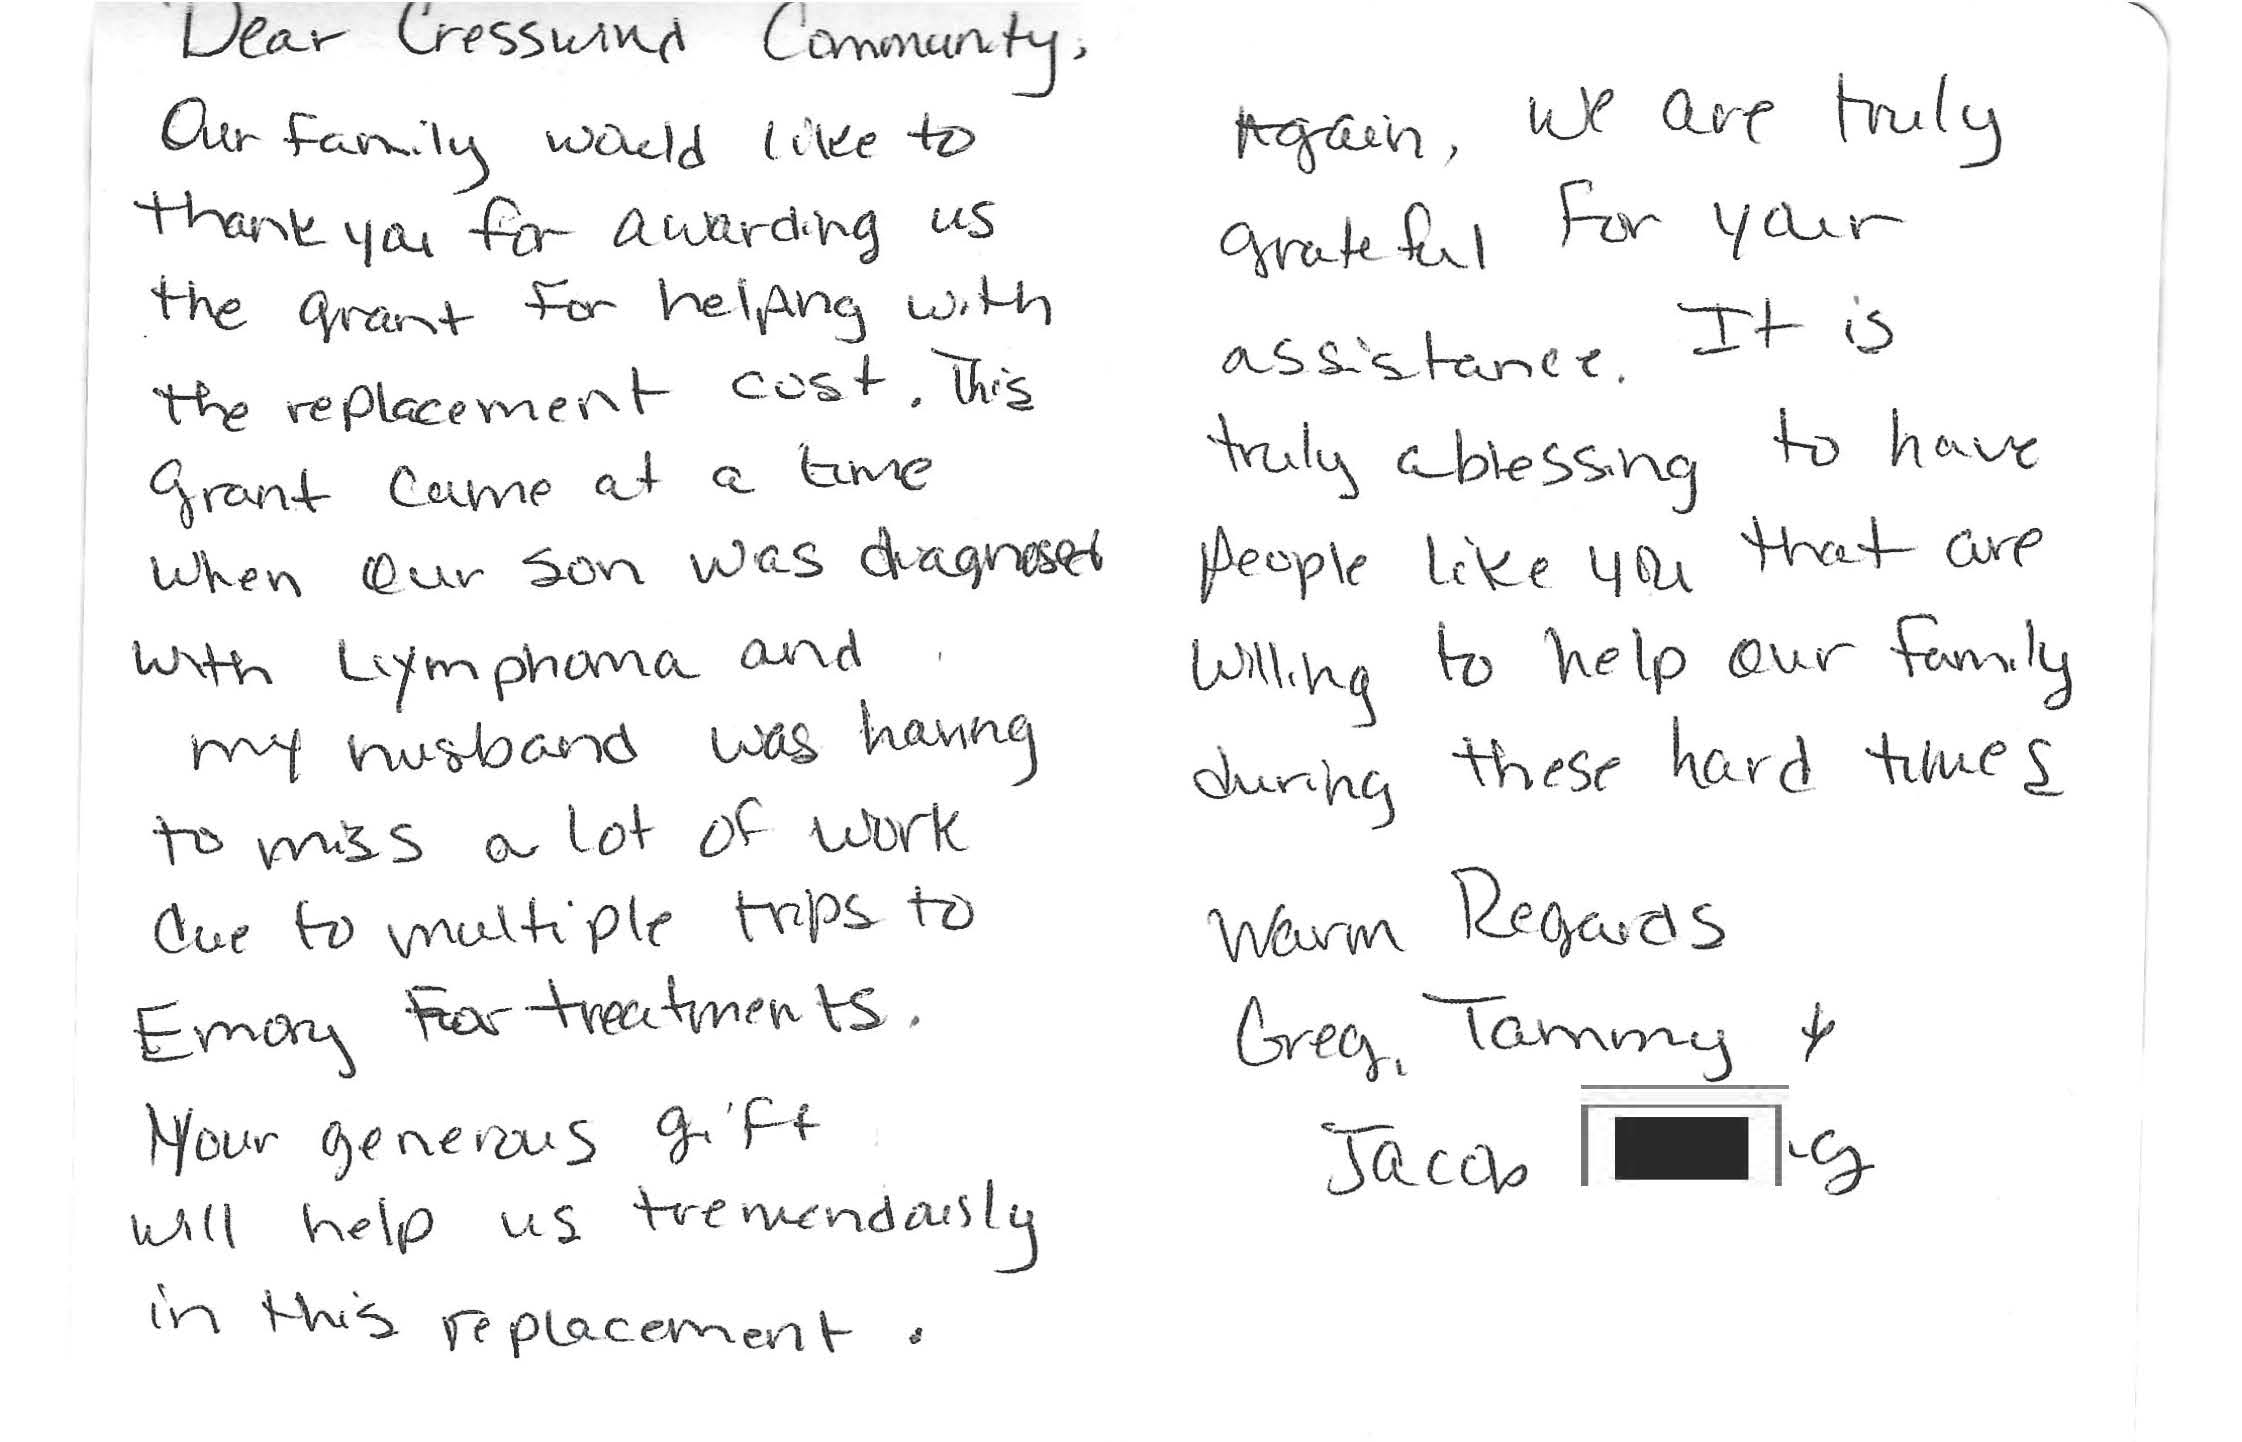 Dear Cresswind Community,
Our family would like to
thank you for awarding us
the grant for helping with
the replacement cost. This
grant came at a time
when our son was diagnosed
with Lymphoma and
my husband was having
to miss a lot of work
due to multiple trips to
Emory For treatments.
Your generous gift
will help us tremendously
in this replacement.
Again, we are truly
grateful for your
assistance. It is
truly a blessing to have
people like you that are
willing to help our family
during these hard times
Warm Regards
Greg, Tammy &
Jacob